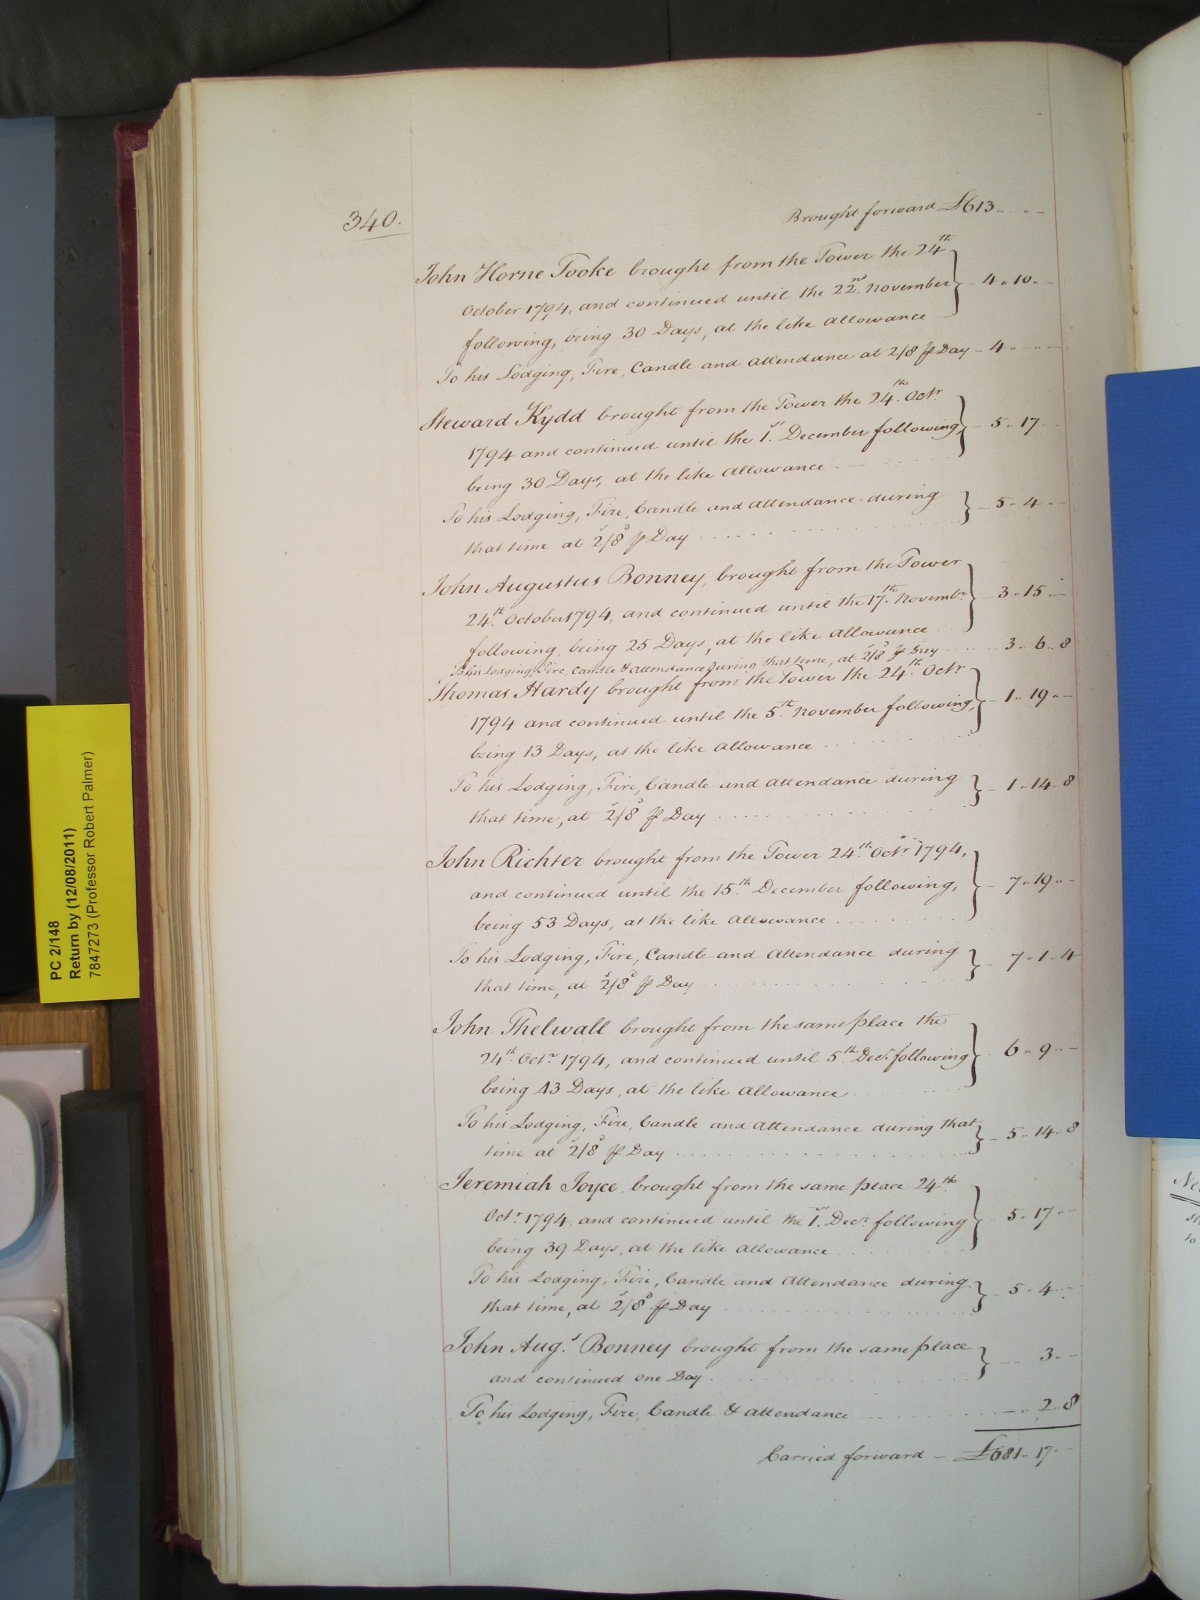 340.
Brought forward £613.. .. -
John Horne Tooke brought from the Tower the 24th
October 1794, and continued until the 22nd November
following, being 30 Days, at the like Allowance
4 .. 10 .. -
To his Lodging, Fire, Candle and Attendance at 2/8 ⅌ Day - 4 .. - .. -
Steward Kydd brought from the Tower the 24th Octr
1794 and continued until the 1st December following
being 30 Days, at the like Allowance
5 .. 17 -
To his Lodging, Fire, Candle and Attendance during
that time at 2s/8d ⅌ Day
5 .. 4 .. -
John Augustus Bonney, brought from the Tower
24th October 1794, and continued until the 17th Novembr
following, being 25 Days, at the like Allowance
3 .. 15 .. -
To his Lodging, Fire, Candle & Attendance during that time, at 2s/8d ⅌ Day
3 .. 6 .. 8
Thomas Hardy brought from the Tower the 24th Octr
1794 and continued until the 5th November following,
being 13 Days, at the like Allowance
1 .. 19 .. -
To his Lodging, Fire, Candle and Attendance during
that time, at 2s/8d ⅌ Day
1 .. 14 .. 8
John Richter brought from the Tower 24th Octr 1794,
and continued until the 15th December following,
being 53 Days, at the like Allowance
7 .. 19 .. -
To his Lodging, Fire, Candle and Attendance during
that time, at 2s/8d ⅌ Day
7 .. 1 .. 4
John Thelwall brought from the same place the
24th Octr 1794, and continued until 5th Decr following
being 43 Days, at the like Allowance
6 .. 9 .. -
To his Lodging, Fire, Candle and Attendance during that
time at 2s/8d ⅌ Day
5 .. 14 .. 8
Jeremiah Joyce, brought from the same place 24th
Octr 1794, and continued until the 1st Decr following
being 39 Days, at the like Allowance
5 .. 17 -
To his Lodging, Fire, Candle and Attendance during
that time, at 2s/8d ⅌ Day
5 .. 4 ..
John Augs Bonney brought from the same place
and continued one Day
3 .. -
To his Lodging, Fire, Candle & Attendance
- .. 2 .. 8
Carried forward - £681 .. 17 -
PC 2/148
Return by (12/08/2011)
7847273 (Professor Robert Palmer)